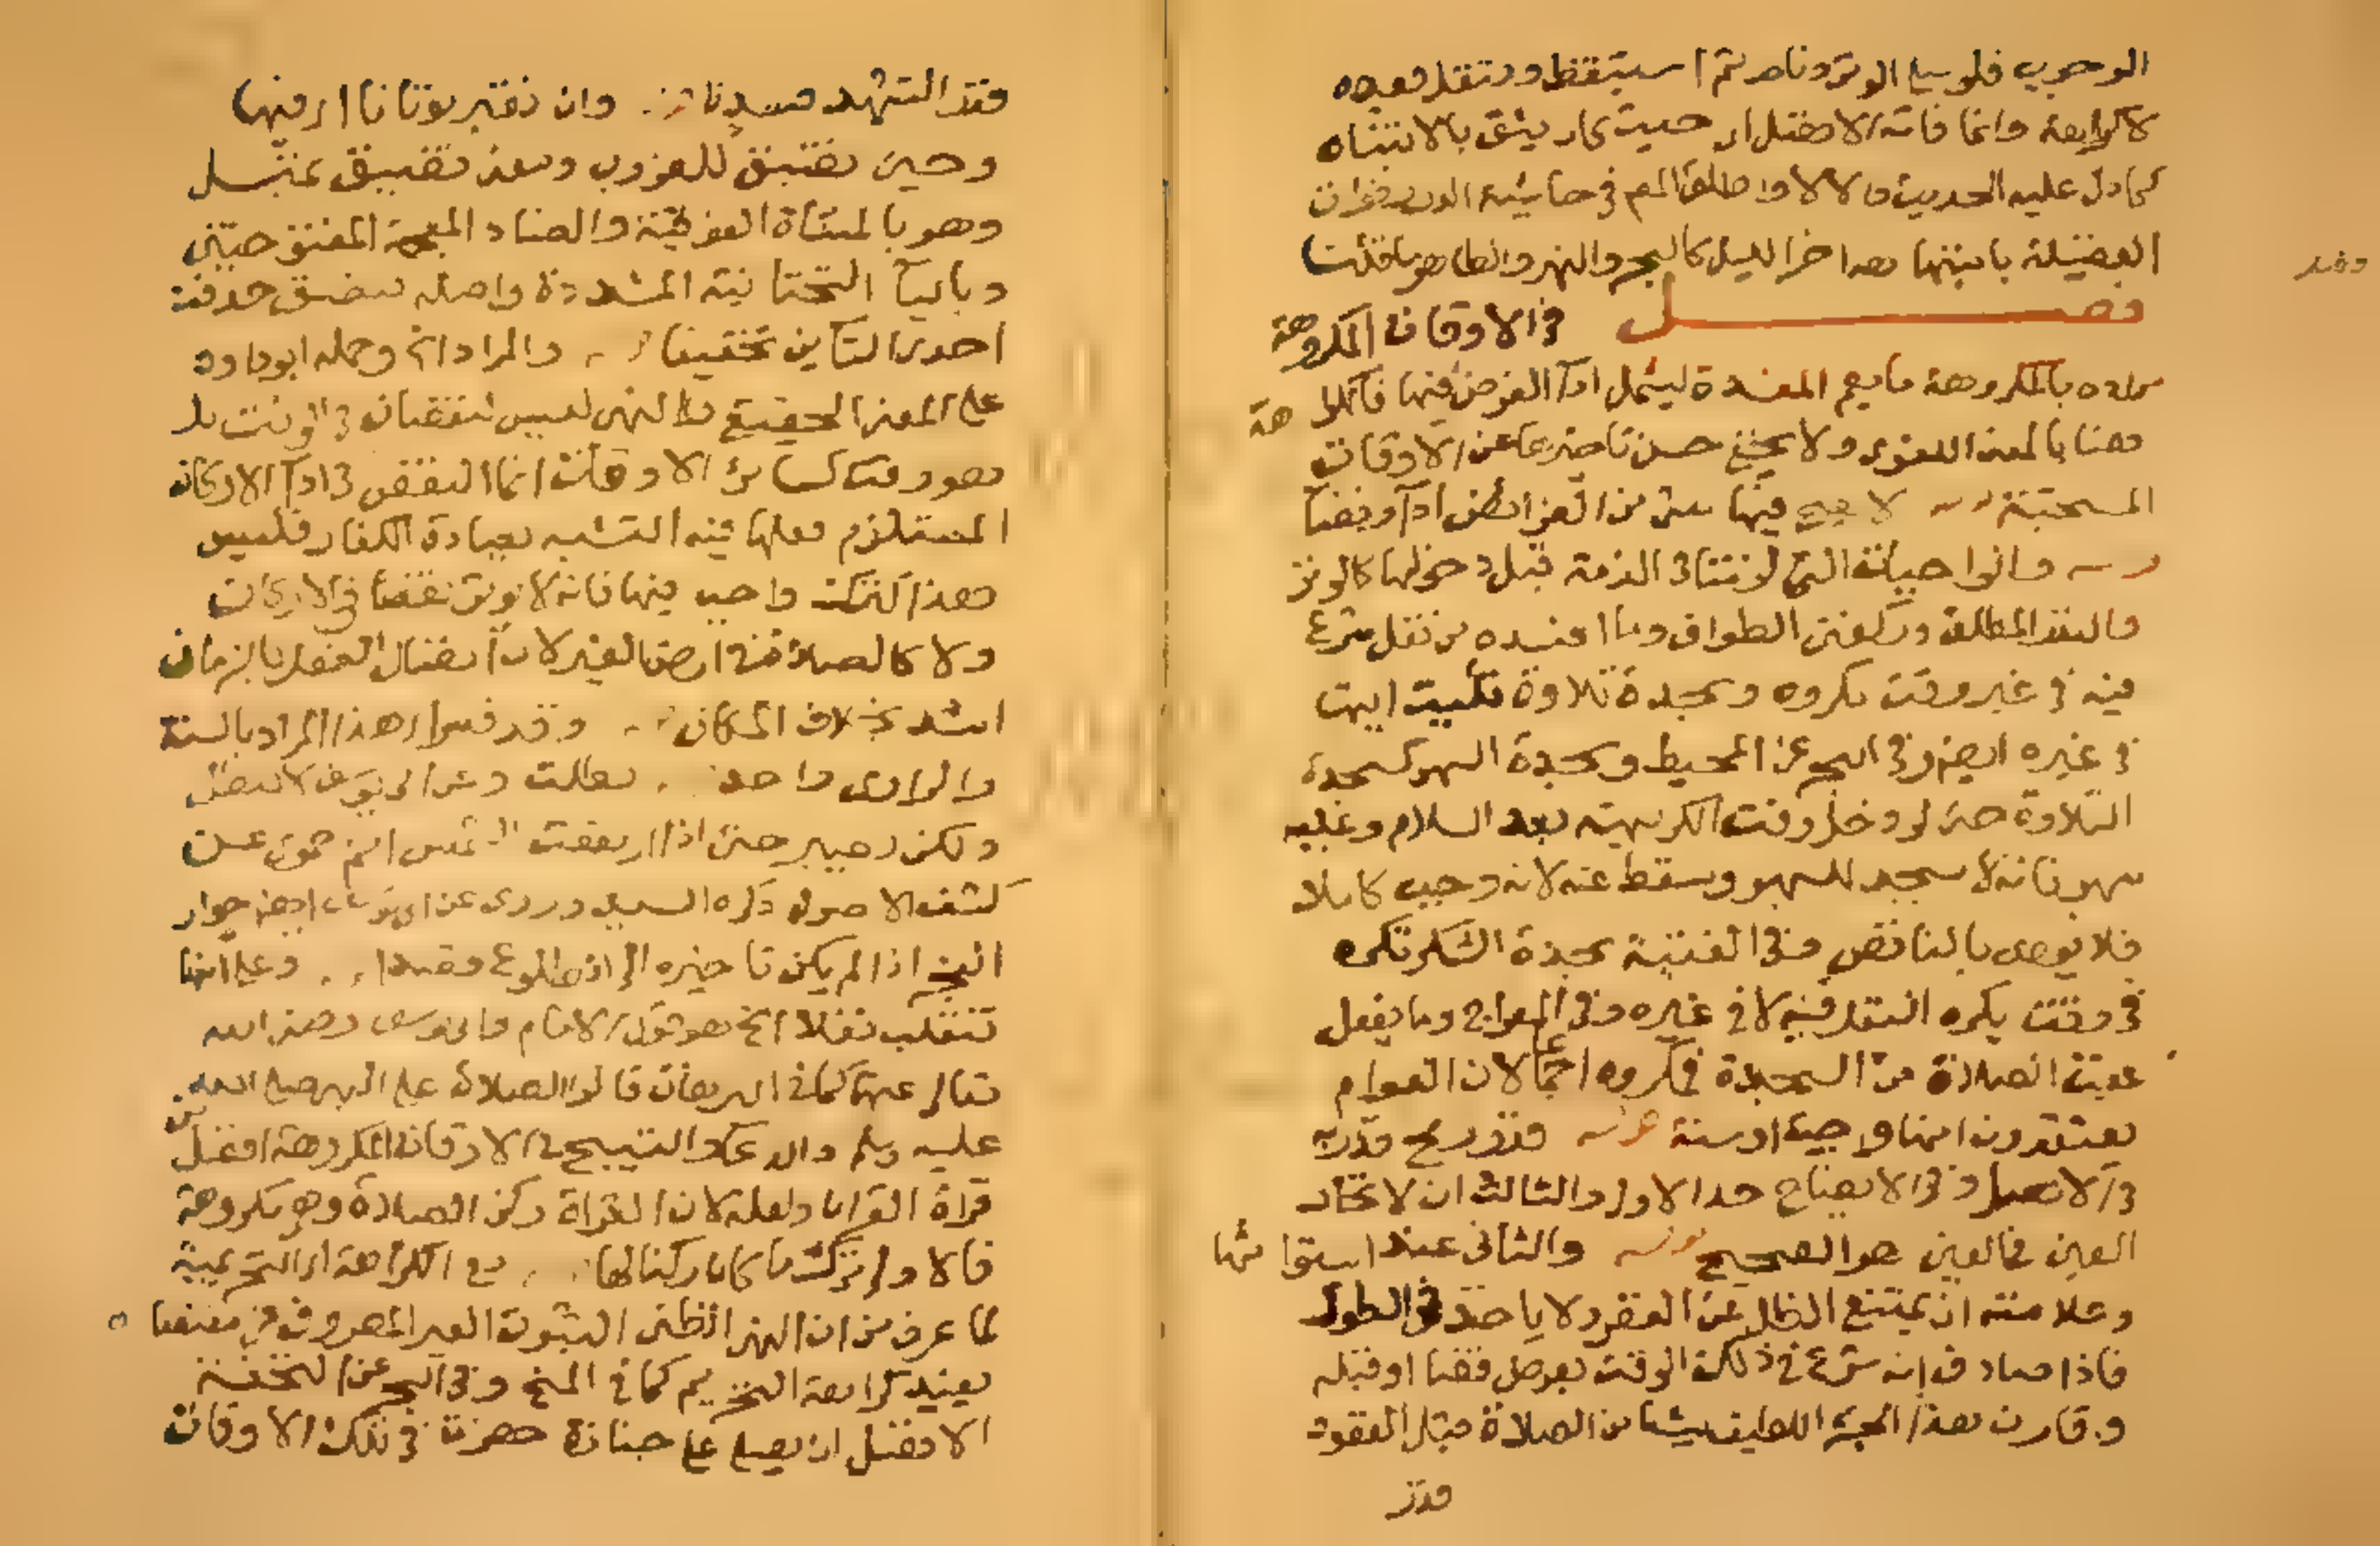 الوجوب فلو صلى الوتر ونام ثم استيقظ وتنفل فعليه
لا كراهة وانما فاته الافضل اي حيث كان يثق بالانتباه
كما دل عليه الحديث والا لا واطلق المص في حاشية الدرر فوات
الفضيلة باتيانها بعد اخر الليل كالبحر والنهر والظاهر ما قلت
وفيه
فصل في الاوقات المكروهة
مراده بالمكروهة ما يعم المفسدة ليشمل اداء الفرض فيها فالكراهة
هنا بالمعنى اللغوي ولا يخفى حسن تاخيرها عن الاوقات
المستحبة لا يصح فيها شئ من الفرائض اداء وقضاء
والواجبات التي لزمت في الذمة قبل دخولها كالوتر
والنذر المطلق وركعتي الطواف وما افسده من نفل شرع
فيه في غير وقت مكروه وسجدة تلاوة تليت ايت
في غيره ايضا وفي البحر عن المحيط وسجدة السهو كسجدة
التلاوة حتى لو دخل وقت الكراهية بعد السلام وعليه
سهو فانه لا يسجد للسهو وسقط عنه لانه وجب كاملا
فلا يؤدى بالناقص وفي القنية سجدة الشكر تكره
في وقت يكره النفل فيه لا في غيره وفي المعراج وما يفعل
عقيب الصلاة من السجدة فمكروه اجماعا لان العوام
يعتقدون انها واجبة او سنة قدر رمح
في الاصل وفي الايضاح حد الاول والثالث ان لا تحار
العين في العين هو الصحيح والثاني عند استوائها
وعلامته ان يمتنع الظل عن القصر ولا ياخذ في الطول
فاذا صادف انه شرع في ذلك الوقت بفرض قضاء او قبله
وقارن هذا الجزء اللطيف شيئا من الصلاة قبل القعود
قدر
قدر التشهد فسدت وان
وحين تضيف للغروب وبعد تضيف تميل
وهو بالمثناة الفوقية والضاد المعجمة المفتوحتين
وبالياء التحتانية المشددة واصله تتضيف حذفت
احدى التاءين تخفيفا والمراد الخ وحمله ابو داود
على المعنى الحقيقي والنهي ليس لنقصان في الوقت بل
هو وقت كسائر الاوقات انما النقص في اداء الاركان
المستلزم فعلها فيه التشبه بعبادة الكفار فليس
هذا كترك واجب فيها فانه لا يوثر نقصا في الاركان
ولا كالصلاة في ارض الغير لان اتصال الفعل بالزمان
اشد بخلاف المكان وقد فسر هذا المراد بالسنة
والراوي واحد بطلت وعن ابي يوسف لا تبطل
ولكن يصبر حتى اذا ارتفعت الشمس اتم حموي عن
كشف الاصول ذكره السيد وروي عن ابي يوسف ايضا جواز
الفجر اذا لم يكن تاخيره الى الطلوع قصدا وعلى انها
تنقلب نفلا الخ هو قول الامام وابي يوسف رضي الله
تعالى عنهما كما في البرهان قالوا الصلاة على النبي صلى الله
عليه وسلم والدعاء والتسبيح في الاوقات المكروهة افضل من
قراءة القران ولعله لان القراءة ركن الصلاة وهي مكروهة
فالاولى ترك ما كان ركنا لها مع الكراهة اي التحريمية
لما عرف من ان النهي الظني الثبوت الغير المصروف عن مقتضاه
يفيد كراهة التحريم كما في المنح وفي البحر عن التحفة
الافضل ان يصلي على جنازة حضرت في تلك الاوقات